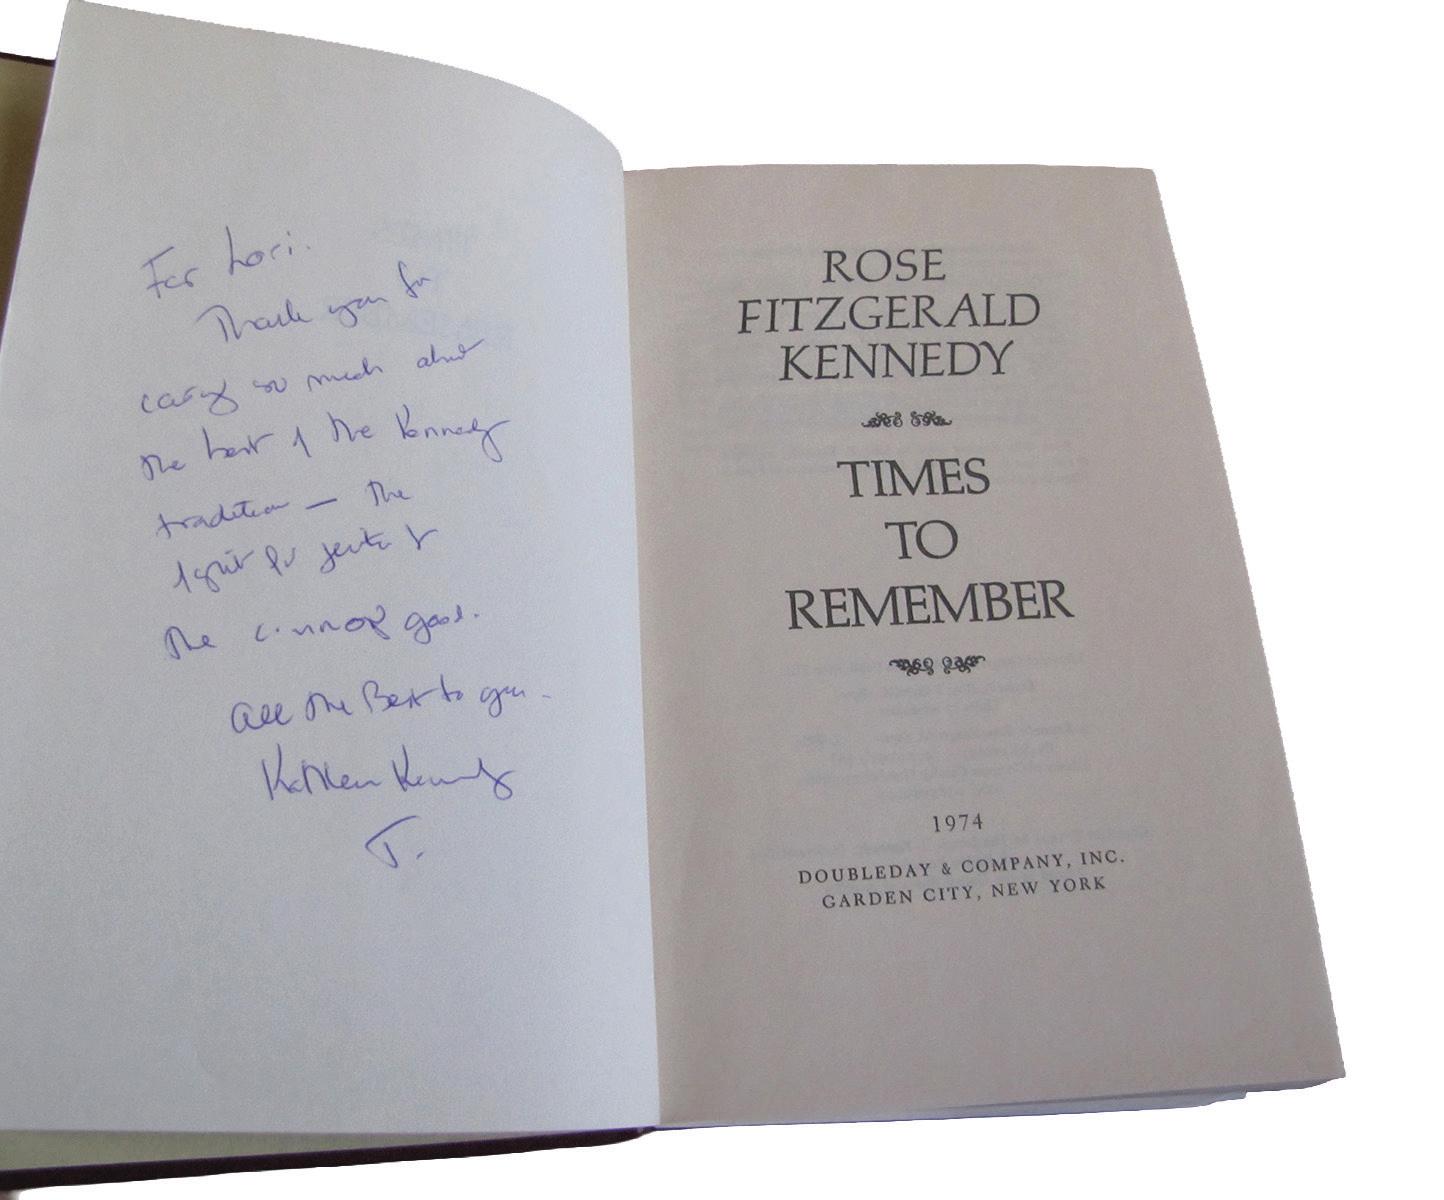 For Lori.
Thank you for
caring so much about
the best of the Kennedy
tradition — the
the common good.
All the Best to you -
Kathleen Kennedy
T.
ROSE
FITZGERALD
KENNEDY
TIMES
TO
REMEMBER
1974
DOUBLEDAY & COMPANY, INC.
GARDEN CITY, NEW YORK